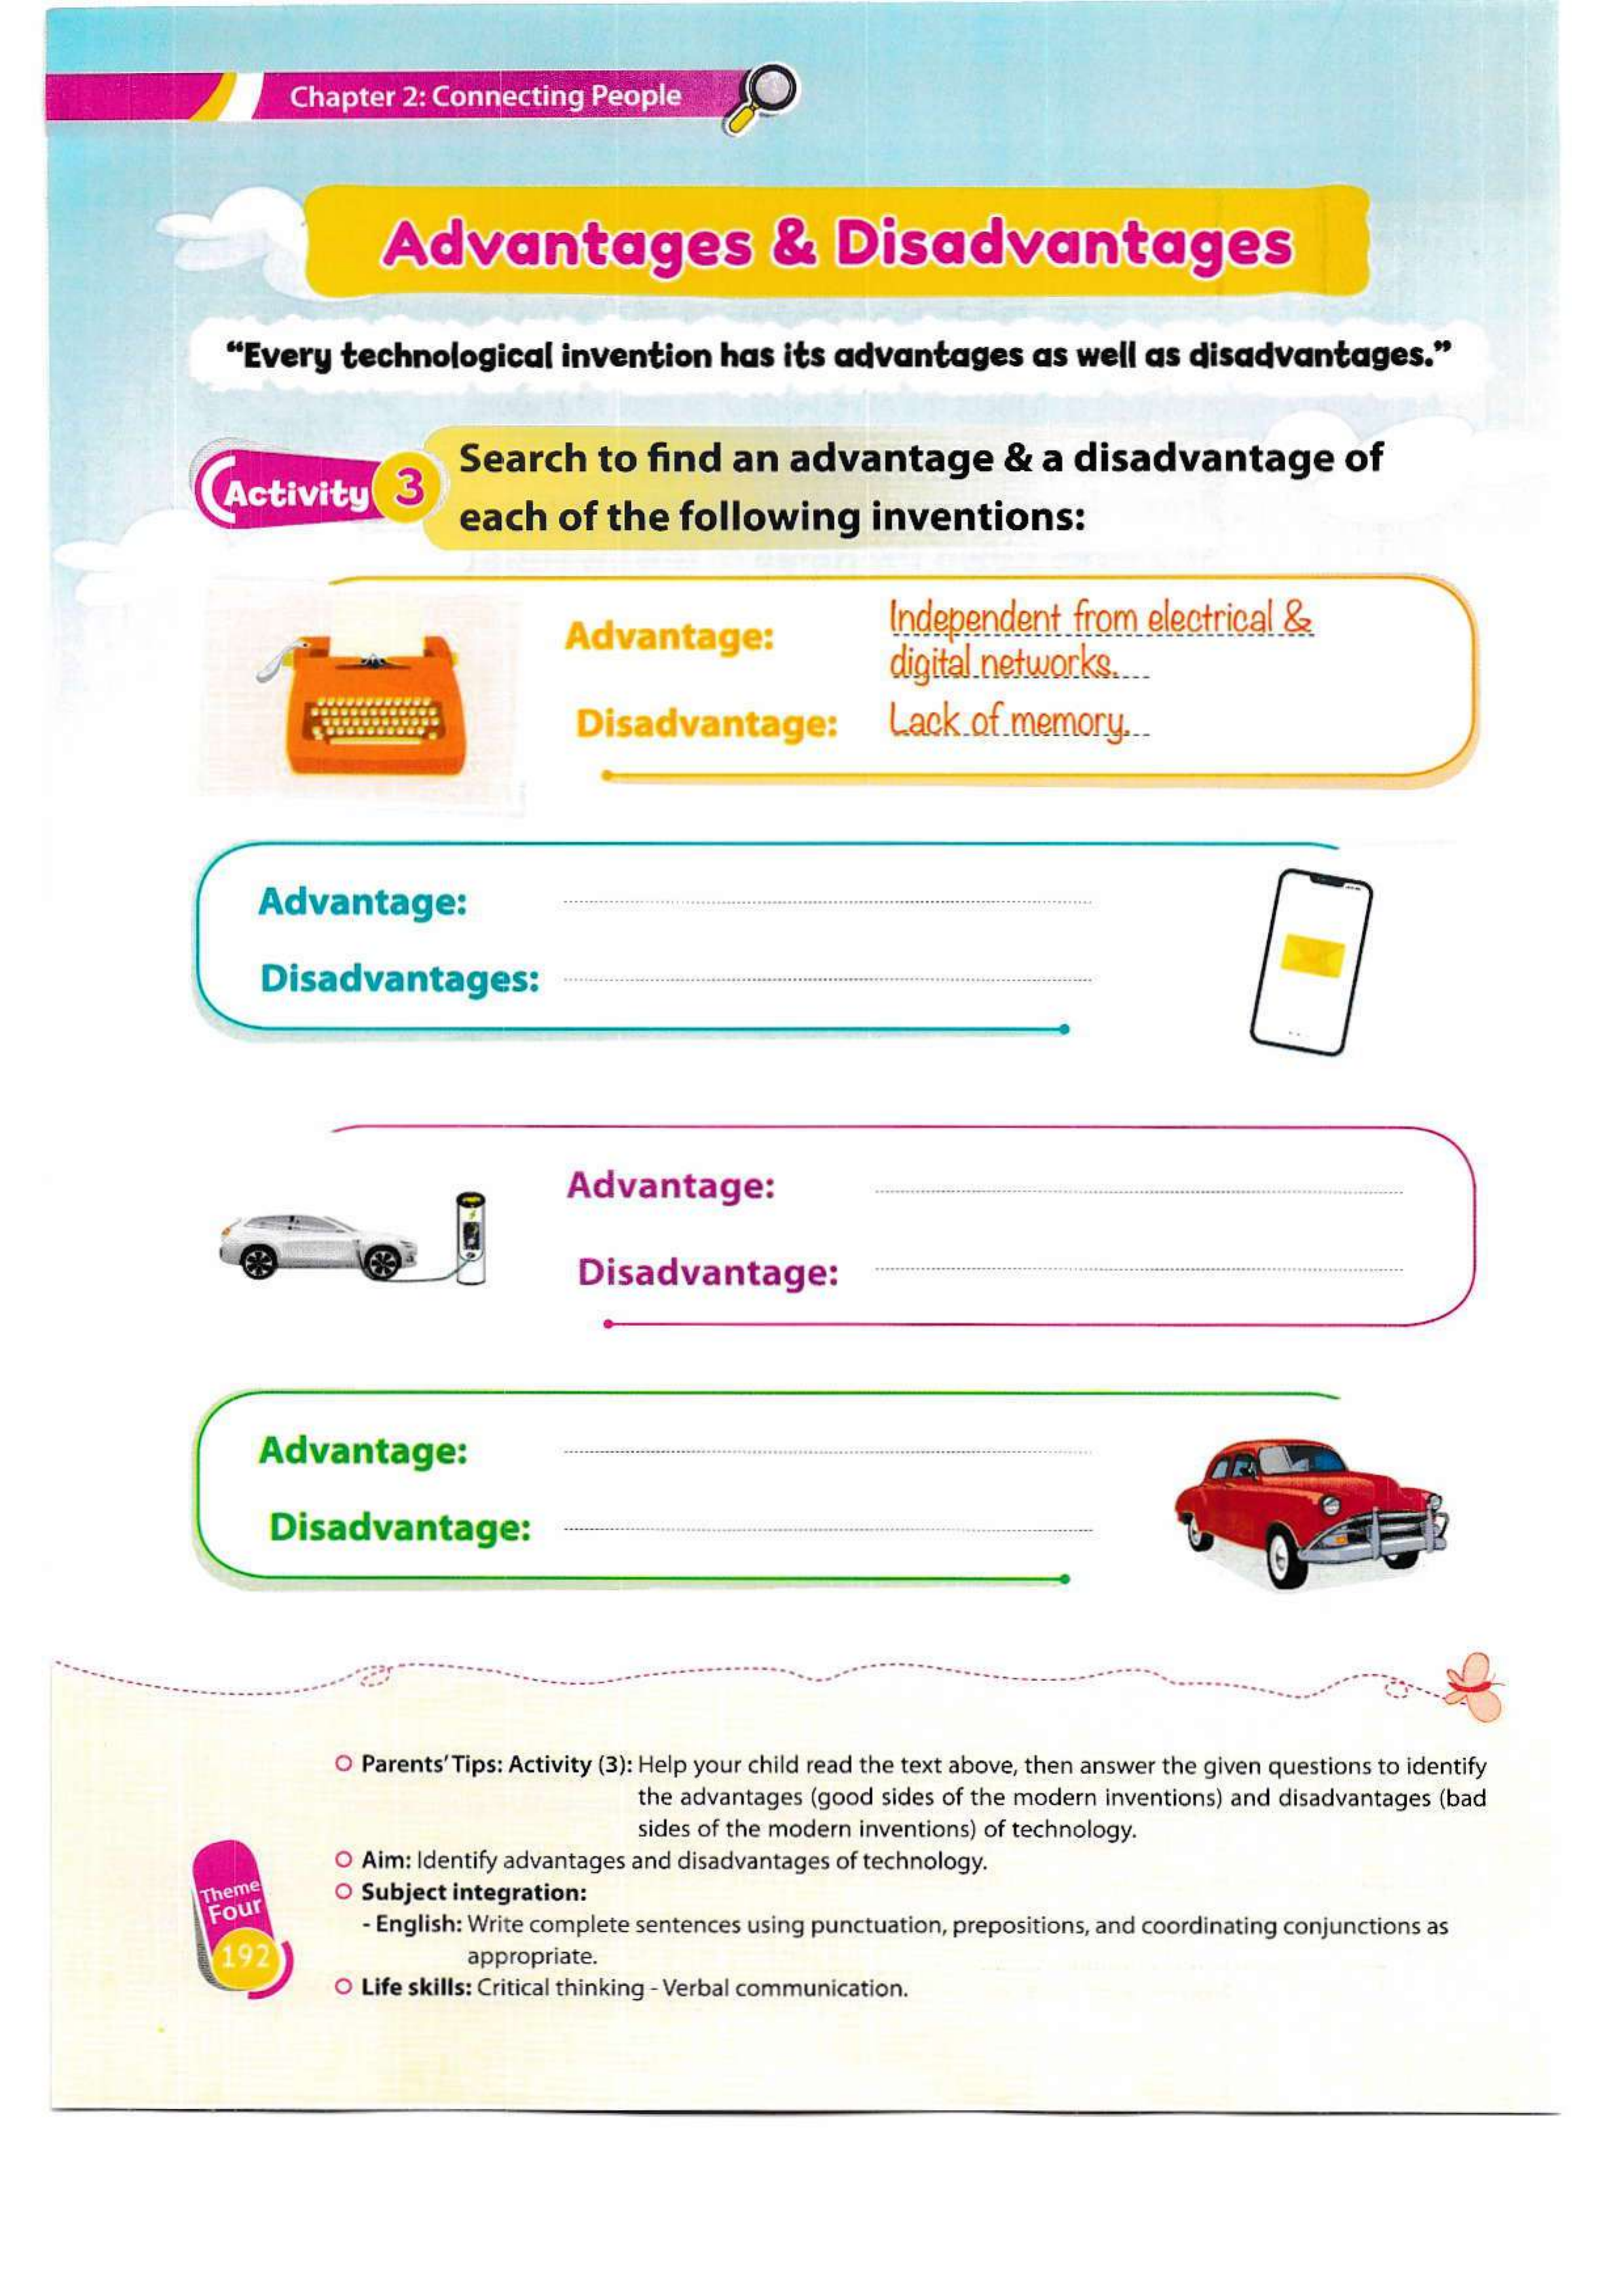 Chapter 2: Connecting People
Advantages & Disadvantages
“Every technological invention has its advantages as well as disadvantages.”
Activity 3
Search to find an advantage & a disadvantage of
each of the following inventions:
Advantage: Independent from electrical &
digital networks.
Disadvantage: Lack of memory.
Advantage:
Disadvantages:
Advantage:
Disadvantage:
Advantage:
Disadvantage:
Parents' Tips: Activity (3): Help your child read the text above, then answer the given questions to identify
the advantages (good sides of the modern inventions) and disadvantages (bad
sides of the modern inventions) of technology.
Aim: Identify advantages and disadvantages of technology.
Subject integration:
- English: Write complete sentences using punctuation, prepositions, and coordinating conjunctions as
appropriate.
Life skills: Critical thinking - Verbal communication.
Theme
Four
192